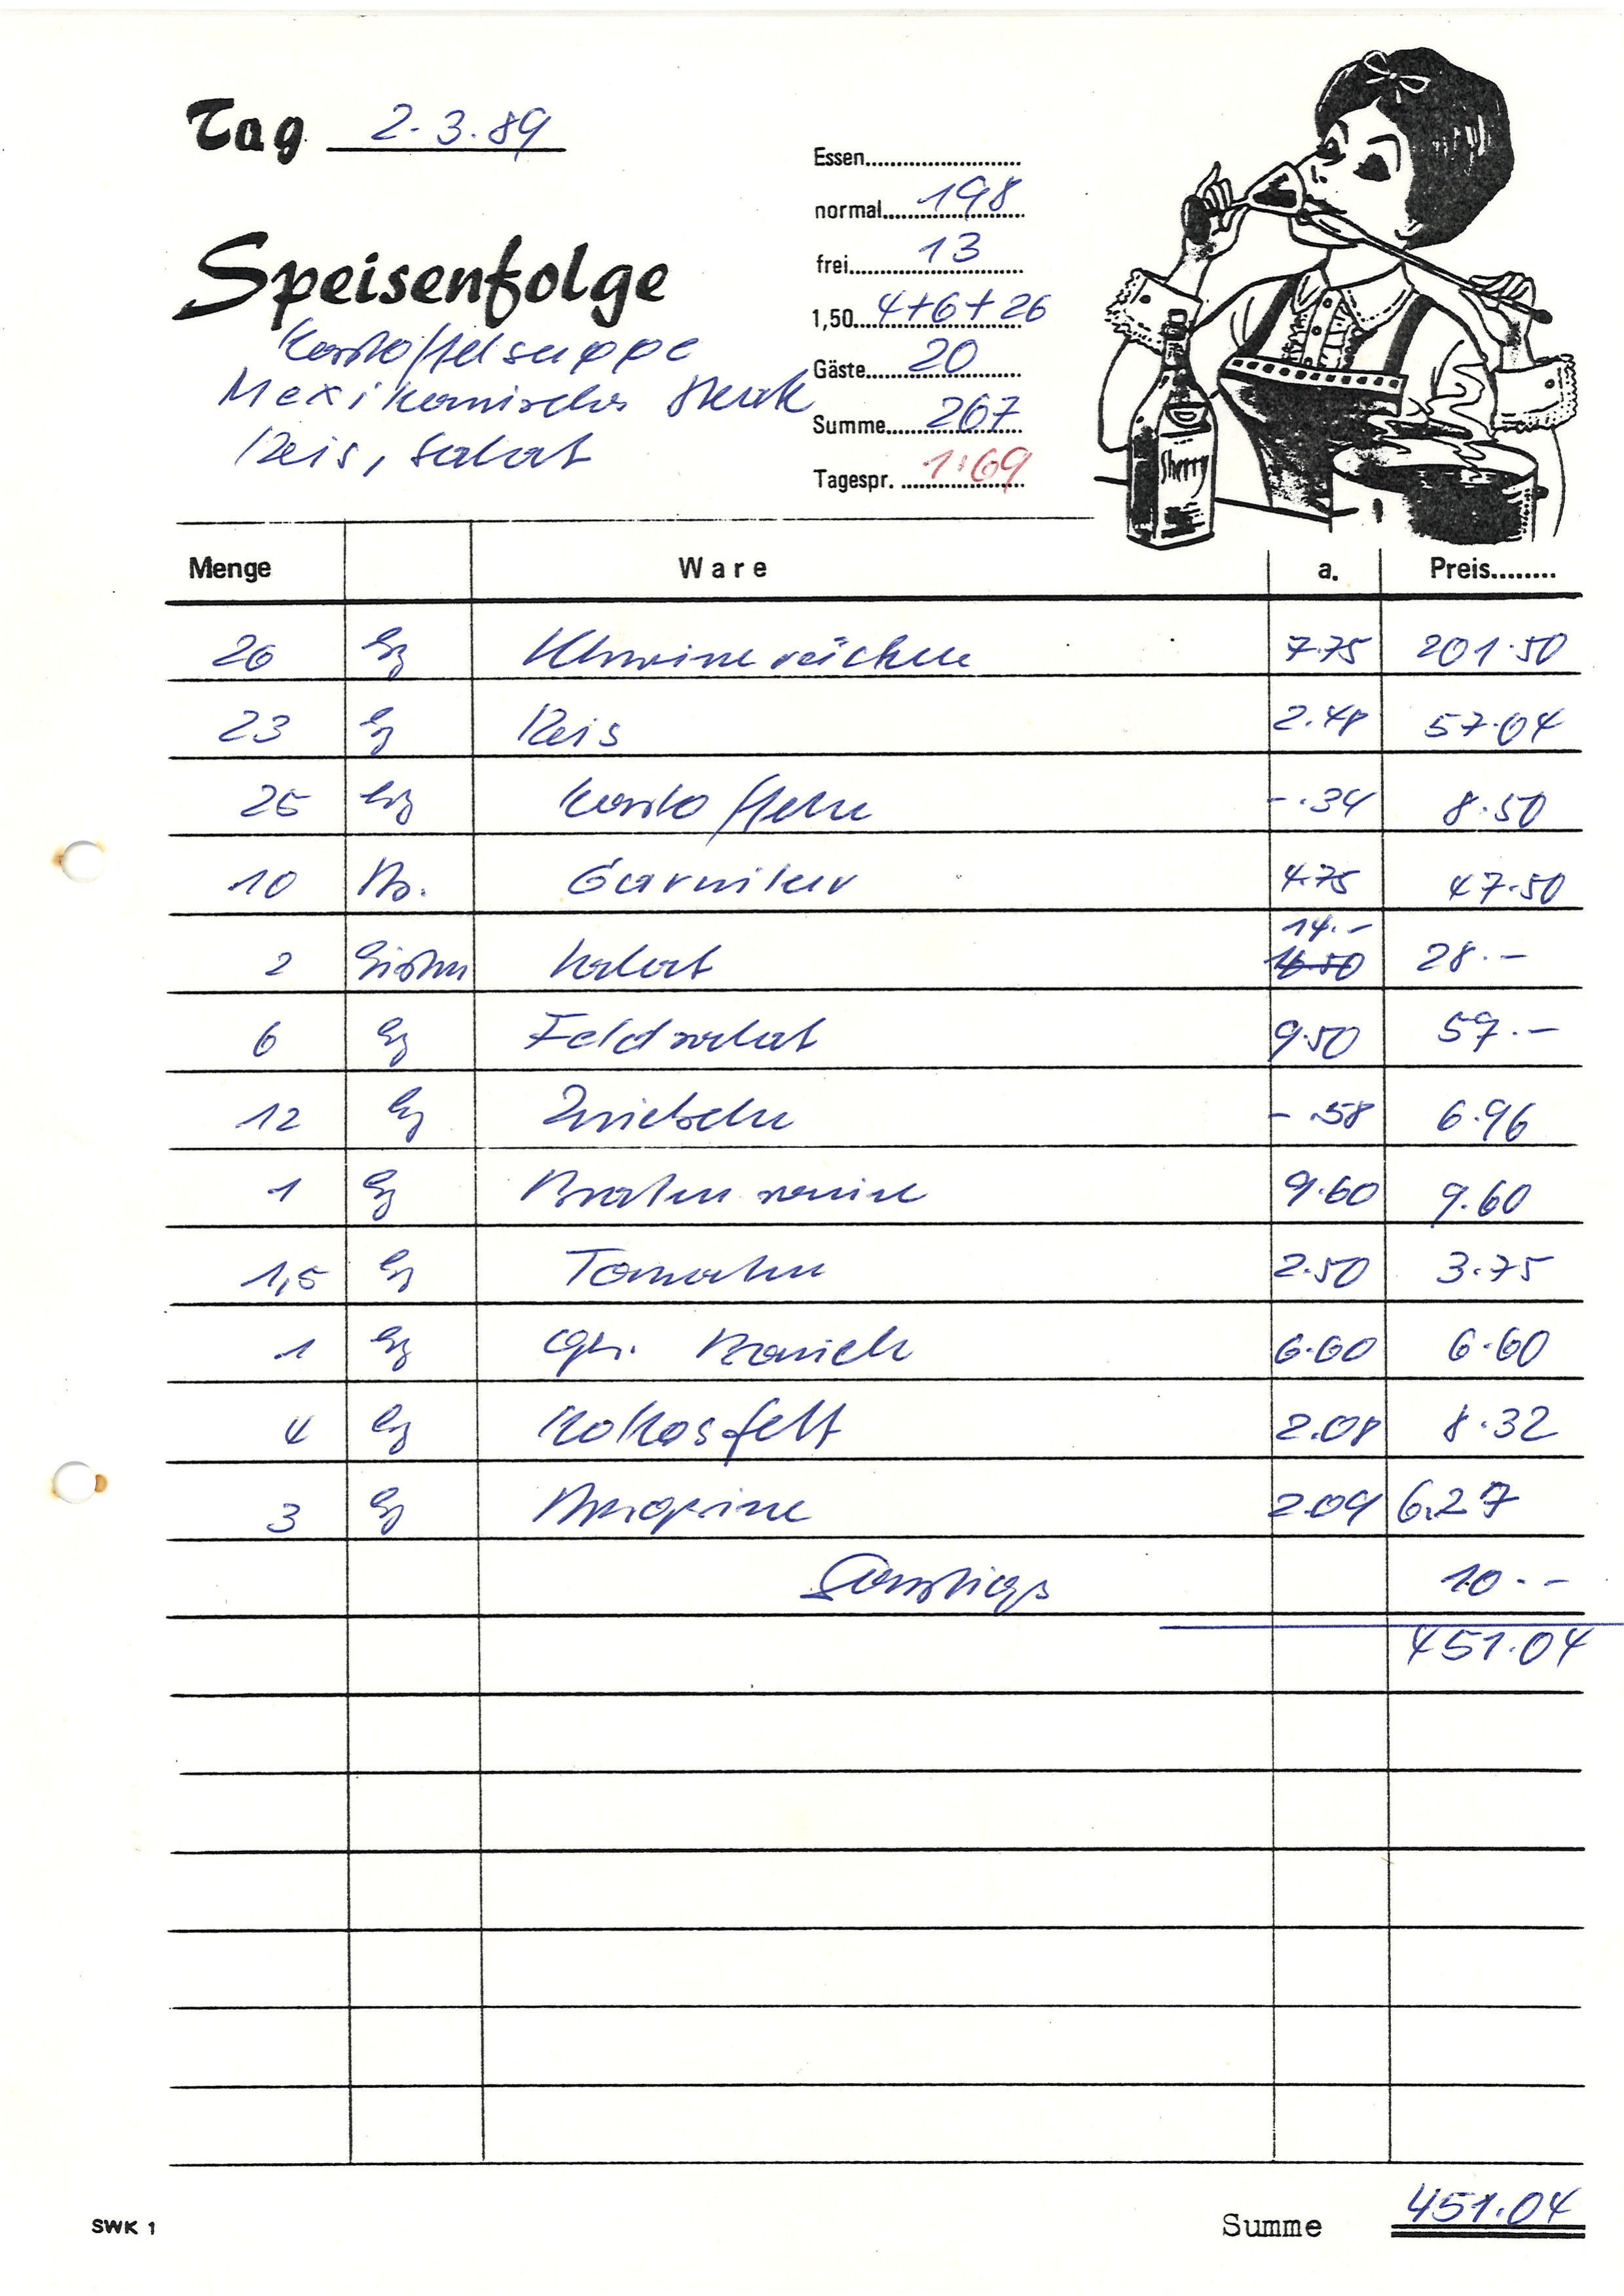 Tag 2.3.89
Essen
normal 198
frei 13
1,50 4+6+26
Gäste 20
Summe 267
Tagespr. 1.69
Speisenfolge
Kartoffelsuppe
Mexikanisches Steak
Reis, Salat
Sherry
Menge Ware a. Preis
26 kg Schweinerücken 7.75 201.50
23 kg Reis 2.48 57.04
25 kg Kartoffeln -.34 8.50
10 Garnitur 4.75 47.50
14.-
2 Kisten Salat 16.50 28.-
6 kg Feldsalat 9.50 57.-
12 kg Zwiebeln -.58 6.96
1 kg Braten 9.60 9.60
1,5 kg Tomaten 2.50 3.75
1 kg gek. 6.60 6.60
4 kg Kokosfett 2.08 8.32
3 kg Margarine 2.09 6.27
Sonstiges 10.--
451.04
SWK 1 Summe 451.04